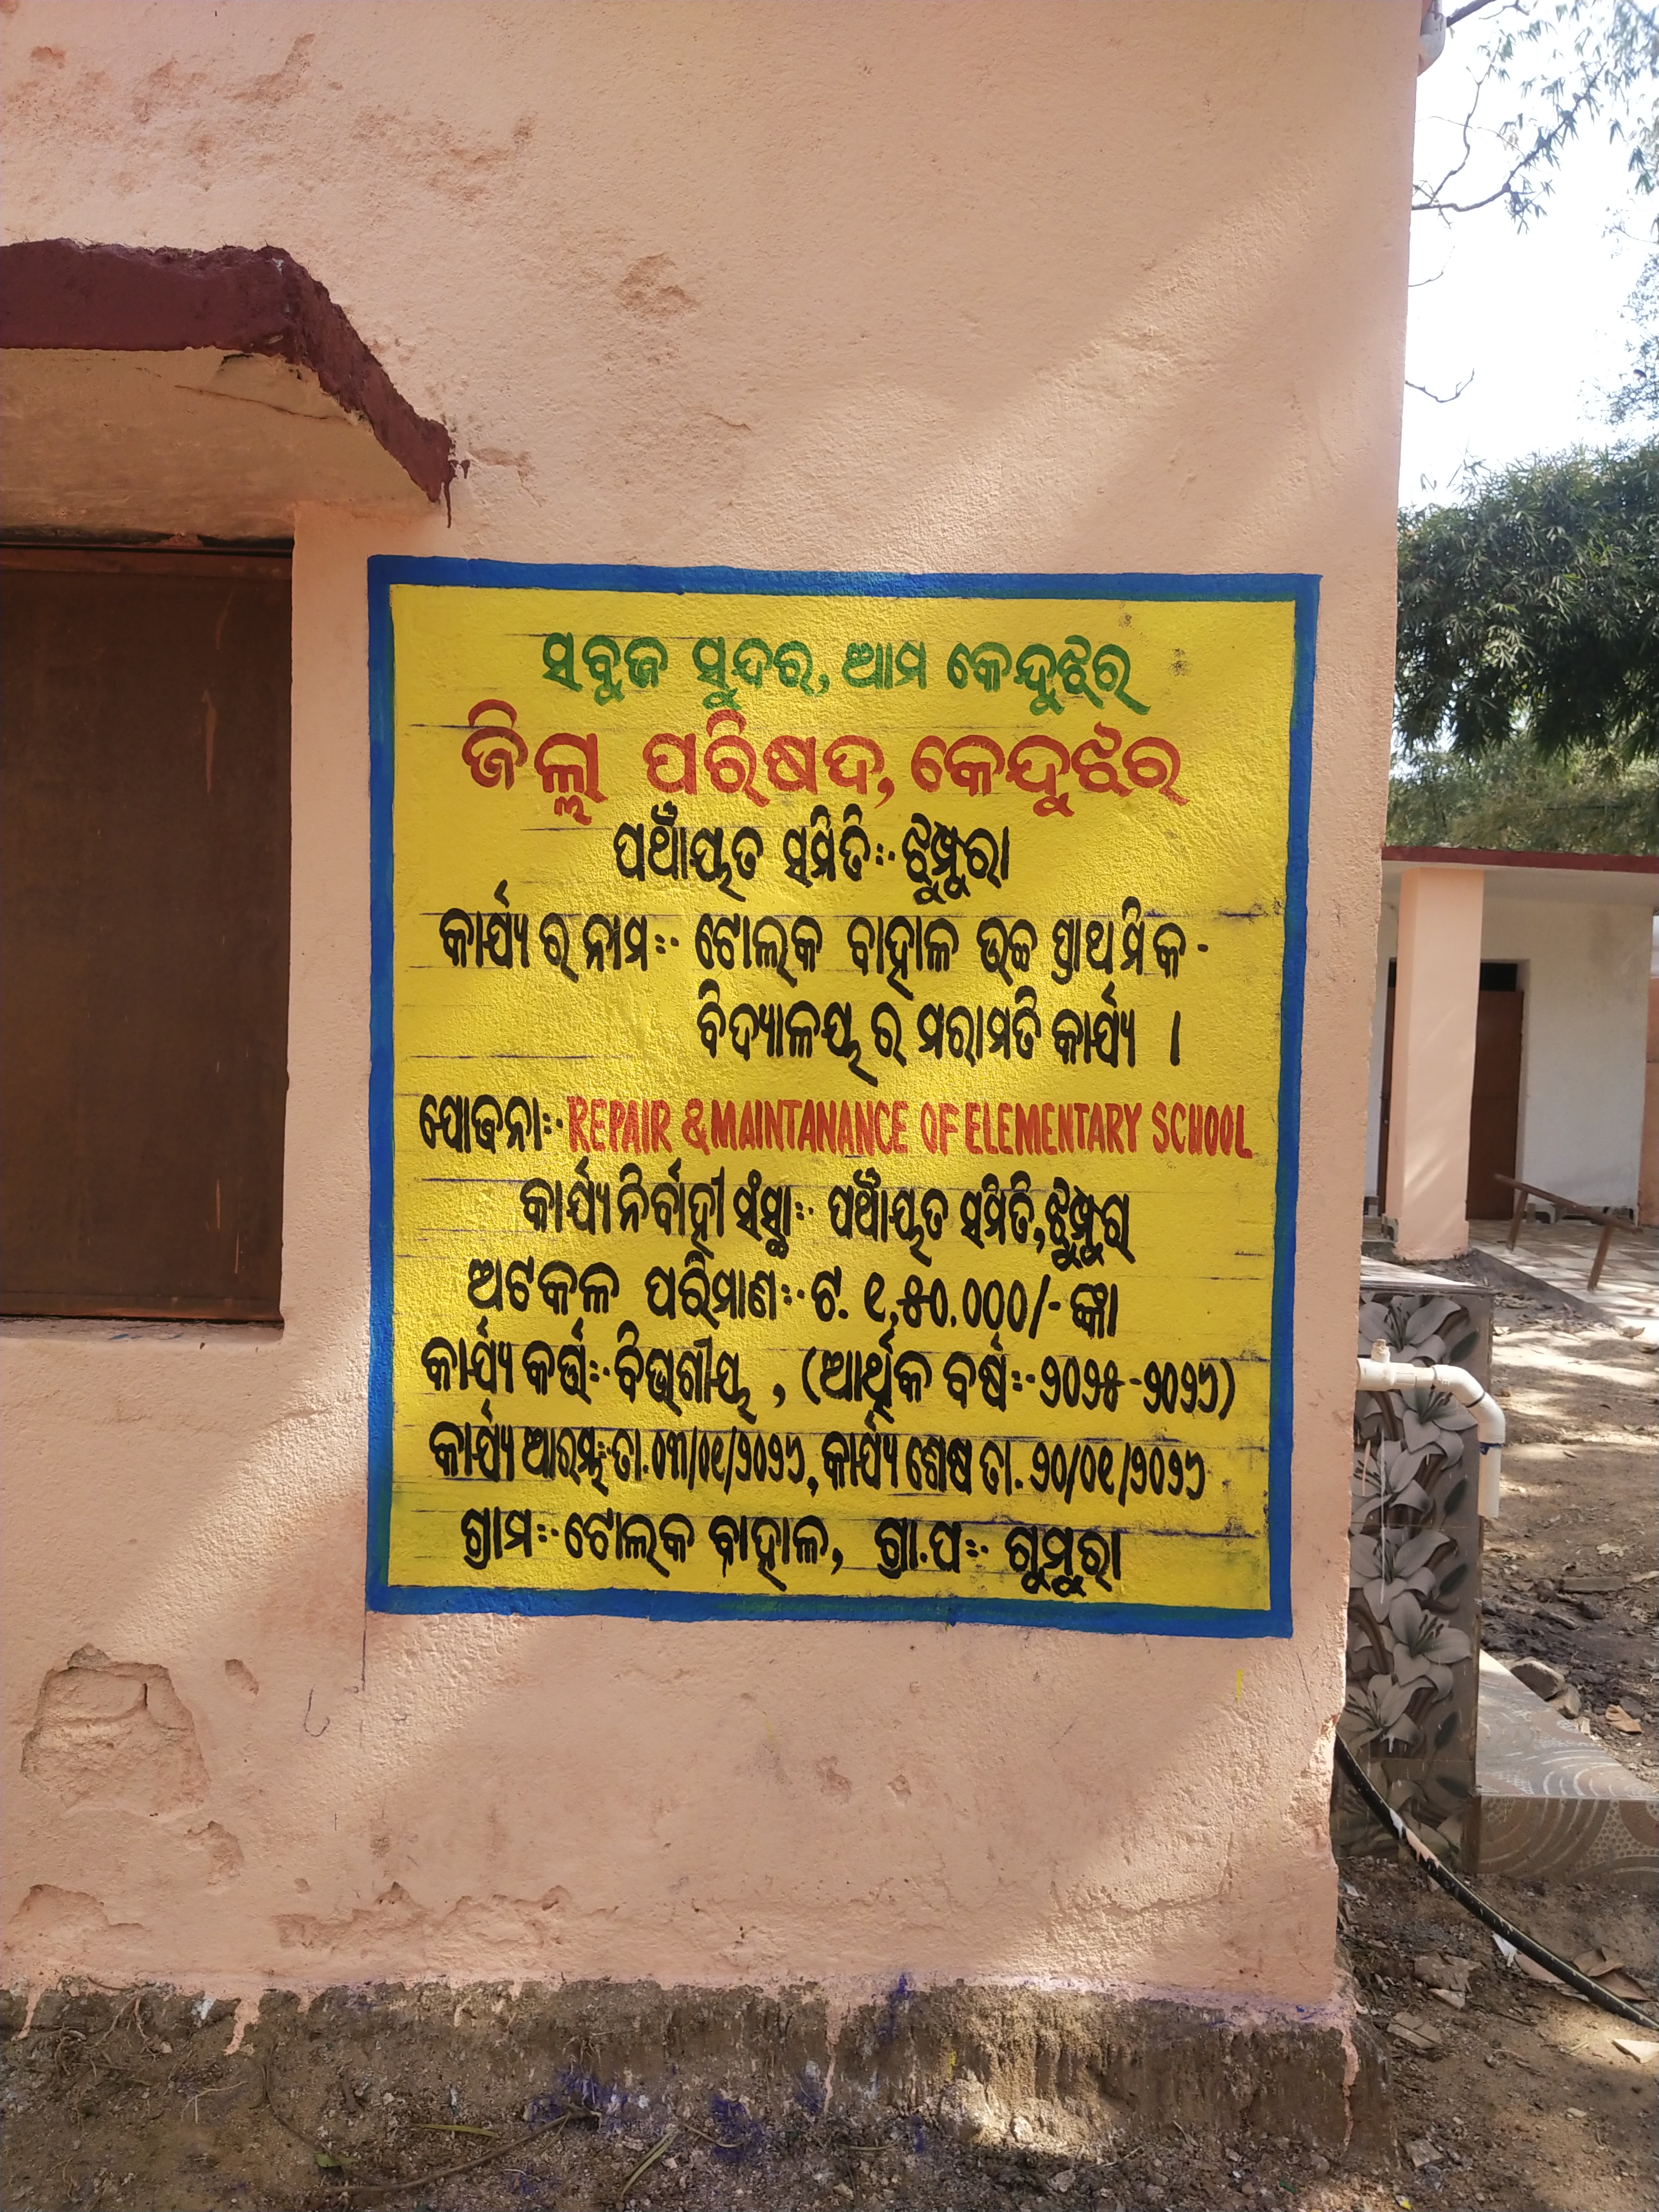 ସବୁଜ ସୁନ୍ଦର, ଆମ କେନ୍ଦୁଝର
ଜିଲ୍ଲା ପରିଷଦ, କେନ୍ଦୁଝର
ପଞ୍ଚାୟତ ସମିତି:- ଝୁମ୍ପୁରା
କାର୍ଯ୍ୟ ର ନାମ:- ଟୋଲ୍‌କ ବାହାଳ ଉଚ୍ଚ ପ୍ରାଥମିକ -
ବିଦ୍ୟାଳୟ ର ମରାମତି କାର୍ଯ୍ୟ ।
ଯୋଜନା:- REPAIR & MAINTANANCE OF ELEMENTARY SCHOOL
କାର୍ଯ୍ୟ ନିର୍ବାହୀ ସଂସ୍ଥା:- ପଞ୍ଚାୟତ ସମିତି, ଝୁମ୍ପୁରା
ଅଟକଳ ପରିମାଣ:- ଟ. ୧,୫୦.୦୦୦/- ଙ୍କା
କାର୍ଯ୍ୟ କର୍ତ୍ତା:- ବିଭାଗୀୟ , (ଆର୍ଥିକ ବର୍ଷ:- ୨୦୨୫-୨୦୨୬)
କାର୍ଯ୍ୟ ଆରମ୍ଭ:- ତା.୦୩/୦୧/୨୦୨୬, କାର୍ଯ୍ୟ ଶେଷ ତା. ୨୦/୦୧/୨୦୨୬
ଗ୍ରାମ:- ଟୋଲ୍‌କ ବାହାଳ, ଗ୍ରା.ପ:- ଗୁମୁରା